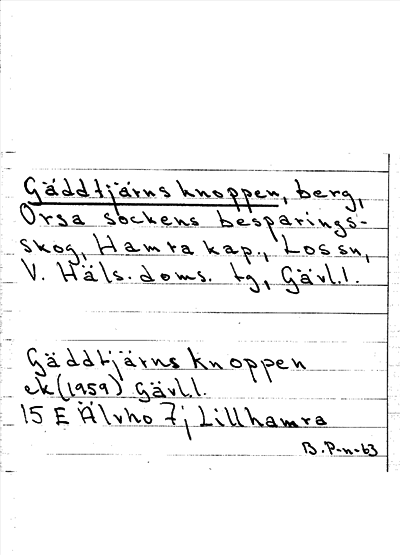 Gäddtjärnsknoppen, berg,
Orsa sockens besparings-
skog, Hamra kap., Los sn,
V. Häls. doms. tg, Gävl.l.
Gäddtjärnsknoppen
ek (1959) Gävl.l.
15 E Älvho 7j Lillhamra
B. P-n-63